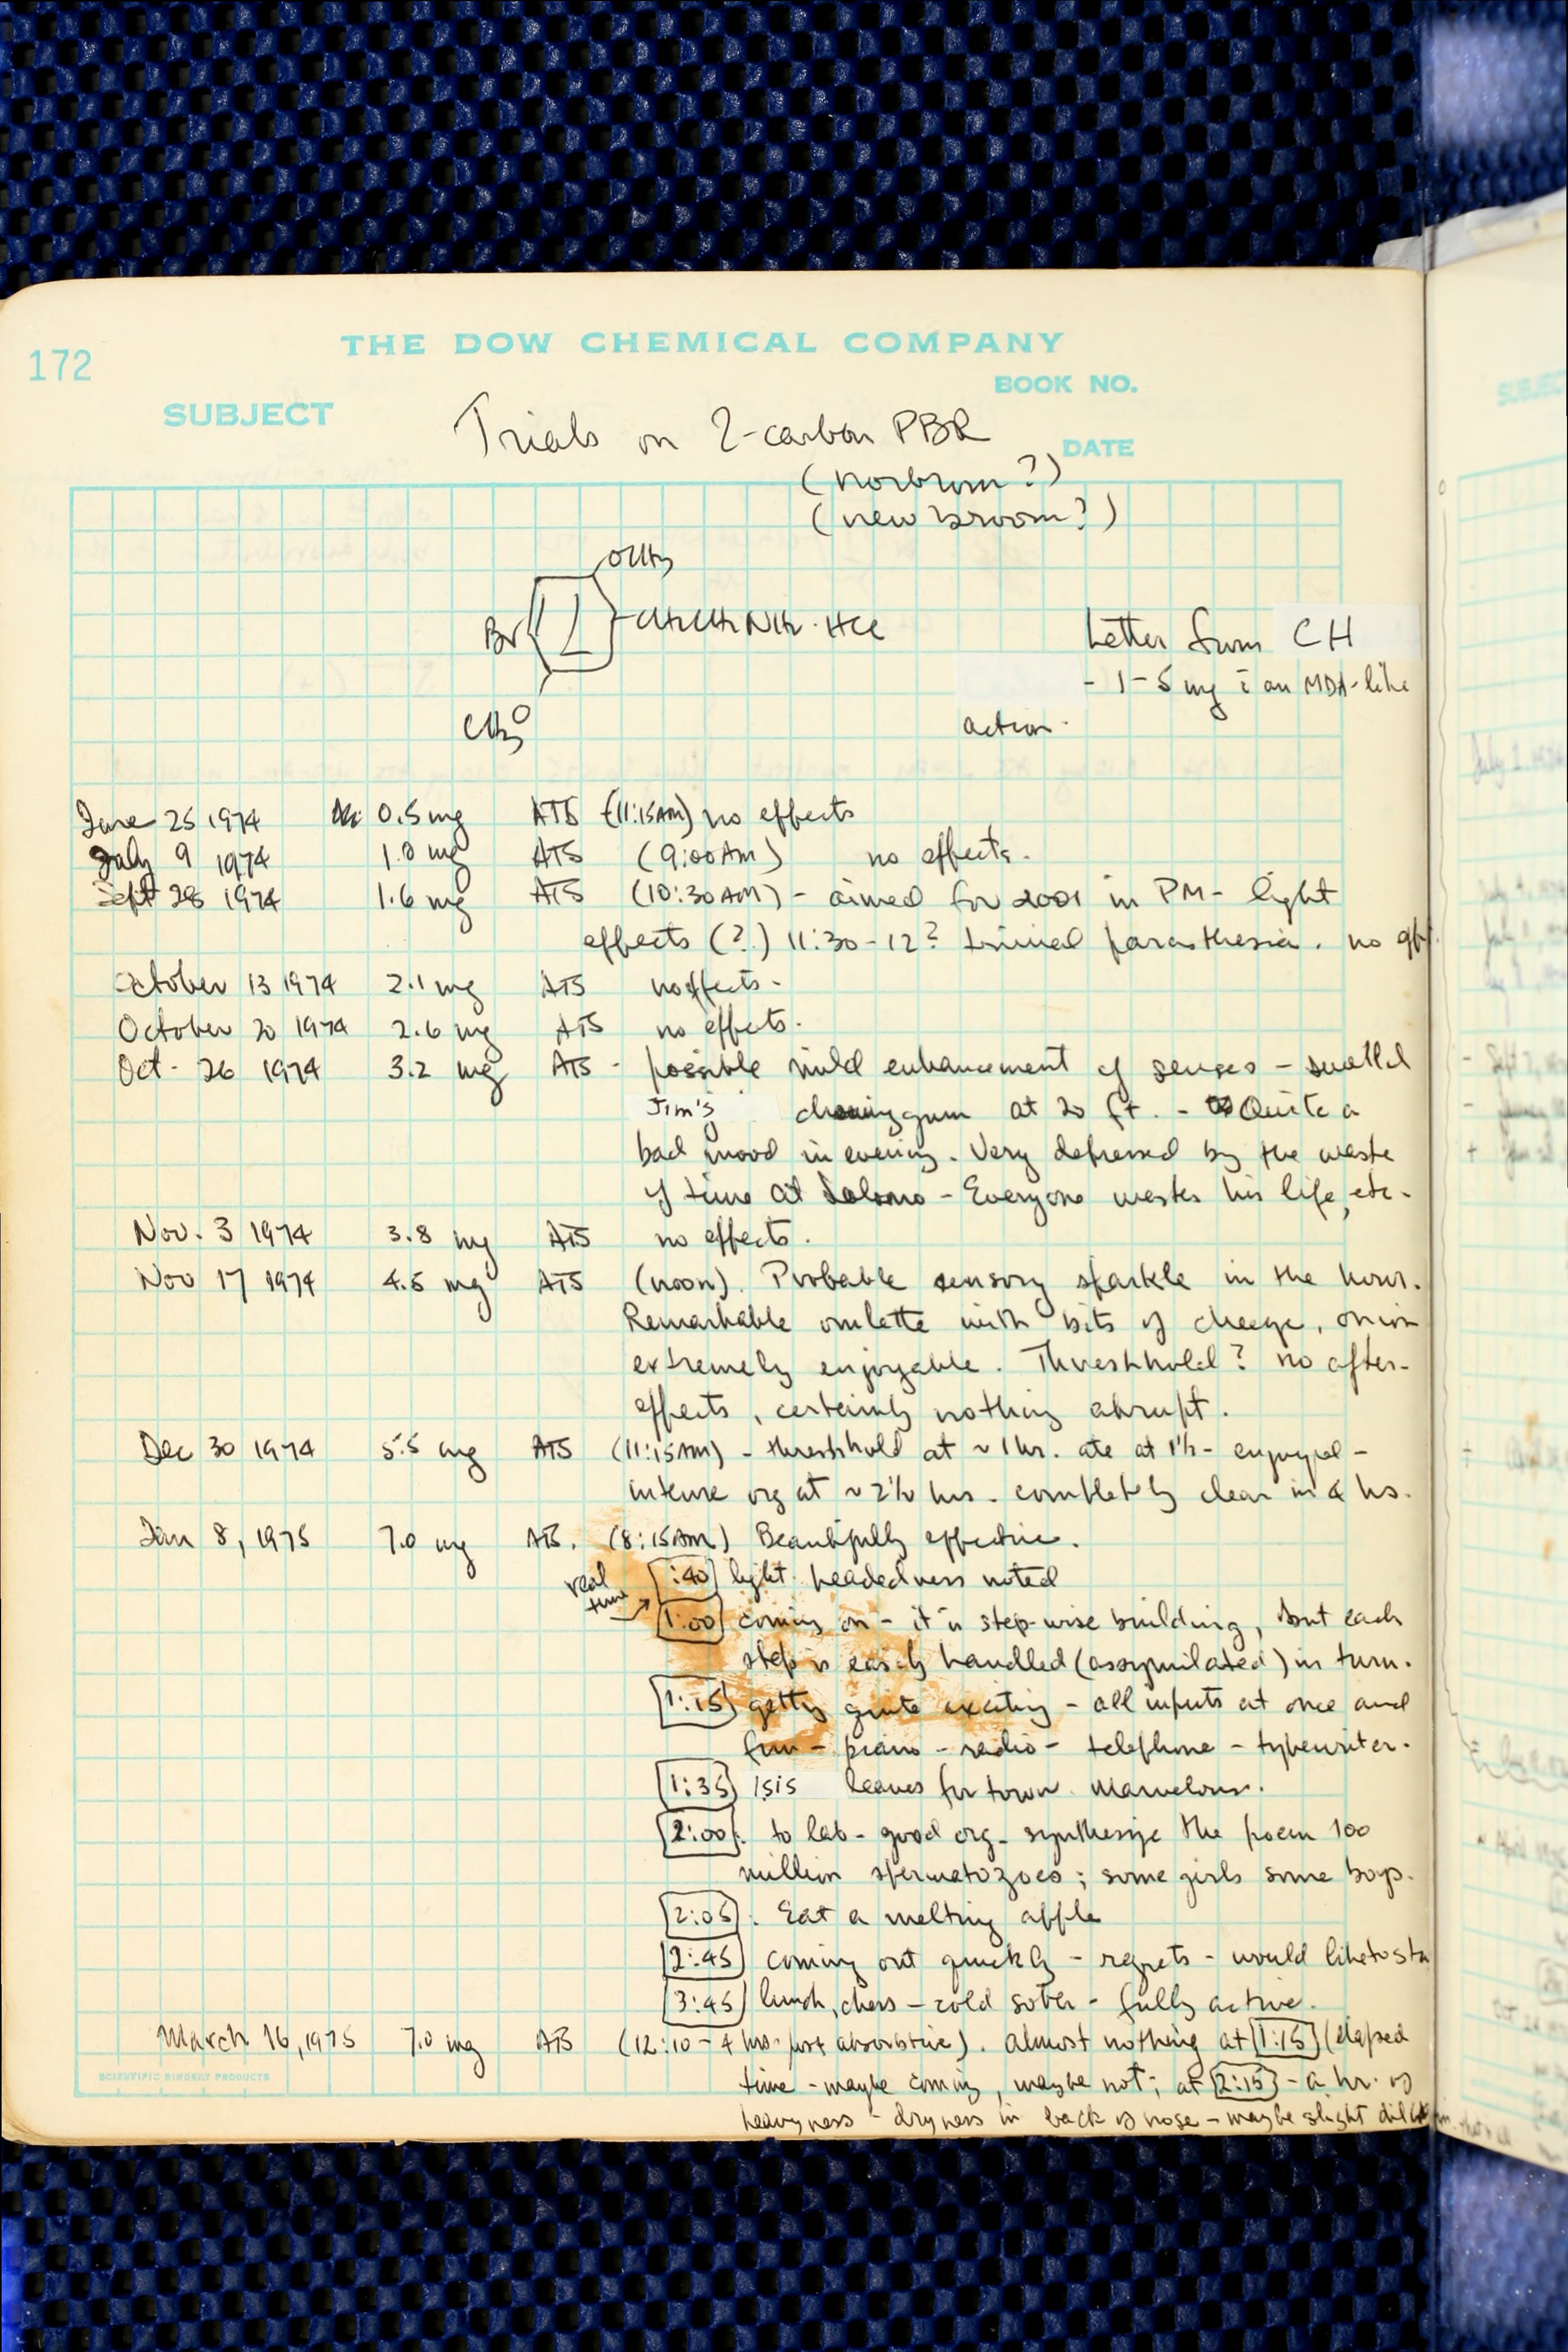 172
THE DOW CHEMICAL COMPANY
BOOK NO.
SUBJECT
Trials on 2-carbon PBR
DATE
(norbrom?)
(new broom?)
OCH3
Br CH2CH2NH2·HCl
CH3O
Letter from CH
- 1-5 mg c̄ an MDA-like
action.
June 25 1974 0.5 mg ATS (11:15AM) no effects
July 9 1974 1.0 mg ATS (9:00AM) no effects.
Sept 28 1974 1.6 mg ATS (10:30AM) - aimed for 2001 in PM - light
effects (?) 11:30-12? parasthesia. no
October 13 1974 2.1 mg ATS no effects -
October 20 1974 2.6 mg ATS no effects.
Oct - 26 1974 3.2 mg ATS - possible mild enhancement of senses - smelled
Jim's chewing gum at 20 ft. - Quite a
bad mood in evening. Very depressed by the waste
of time at - Everyone wastes his life, etc.
Nov. 3 1974 3.8 mg ATS no effects.
Nov 17 1974 4.5 mg ATS (noon). Probable sensory sparkle in the hour.
Remarkable omlette with bits of cheeze, onion
extremely enjoyable. Threshhold? no after-
effects, certainly nothing abrupt.
Dec 30 1974 5.5 mg ATS (11:15AM) - threshhold at ~ 1 hr. ate at 1½ - enjoyed -
intense org at ~ 2½ hrs. completely clear in 4 hrs.
Jan 8, 1975 7.0 mg ATS. (8:15AM) Beautifully effective.
real time → :40 light headedness noted
1:00 coming on - it is step-wise building, but each
step is easily handled (assymilated) in turn.
1:15 getting quite exciting - all inputs at once and
fun - piano - radio - telephone - typewriter.
1:35 Isis leaves for town. Marvelous.
2:00: to lab - good org - synthesize the poem 100
million spermatozoas; some girls some boys.
2:05: Eat a melting apple
2:45 coming out quickly - regrets - would like to sta
3:45 lunch, chess - cold sober - fully active.
March 16, 1975 7.0 mg ATS (12:10 - 4 hrs. post absorbtive). almost nothing at 1:15 (elapsed
time - maybe coming, maybe not; at 2:15 - a hr. of
heavyness - dryness in back of nose - maybe slight
SCIENTIFIC BINDERY PRODUCTS